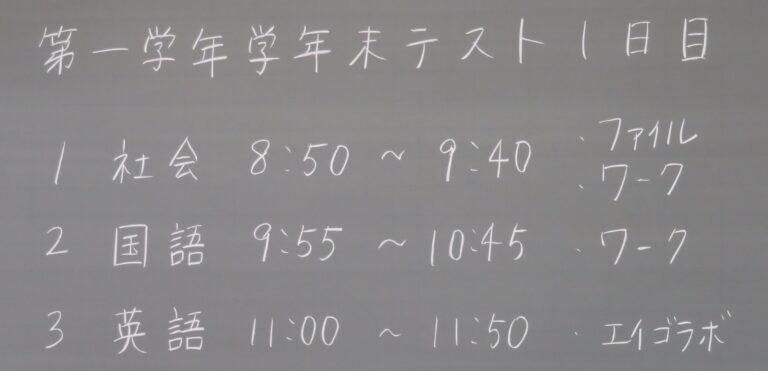 第一学年学年末テスト1日目
1 社会 8:50 ~ 9:40 ・ファイル
・ワーク
2 国語 9:55 ~ 10:45 ・ワーク
3 英語 11:00 ~ 11:50 ・エイゴラボ